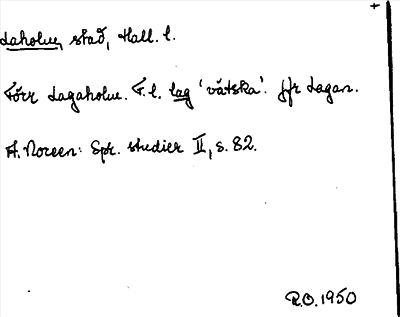 +
Laholm, stad, Hall. l.
Förr Lagaholm. F. l. lag 'vätska'. jfr Lagan.
A. Noreen: Spr. studier II, s. 82.
R.O. 1950